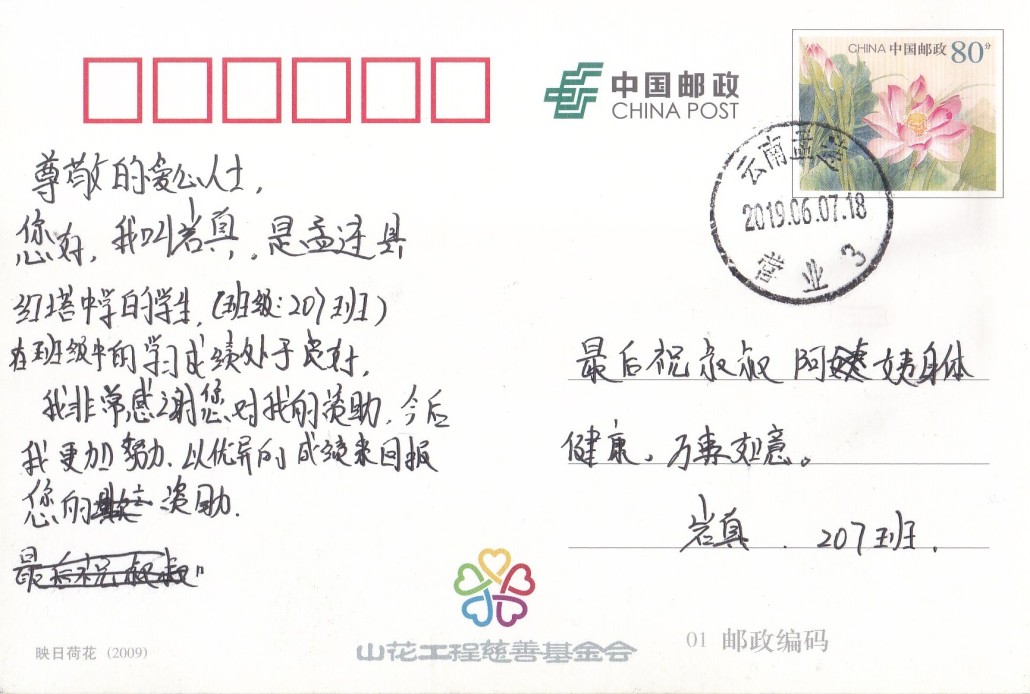 CHINA 中国邮政 80分
中国邮政
CHINA POST
云南孟连
2019.06.07.18
营业 3
尊敬的爱心人士,
您好,我叫岩真,是孟连县
红塔中学的学生,(班级:207班)
在班级中的学习成绩处于良好,
我非常感谢您对我的资助,今后
我更加努力,以优异的成绩来回报
您的资助.
最后祝叔叔
最后祝叔叔阿姨身体
健康,万事如意。
岩真.207班.
山花工程慈善基金会
映日荷花 (2009)
01 邮政编码